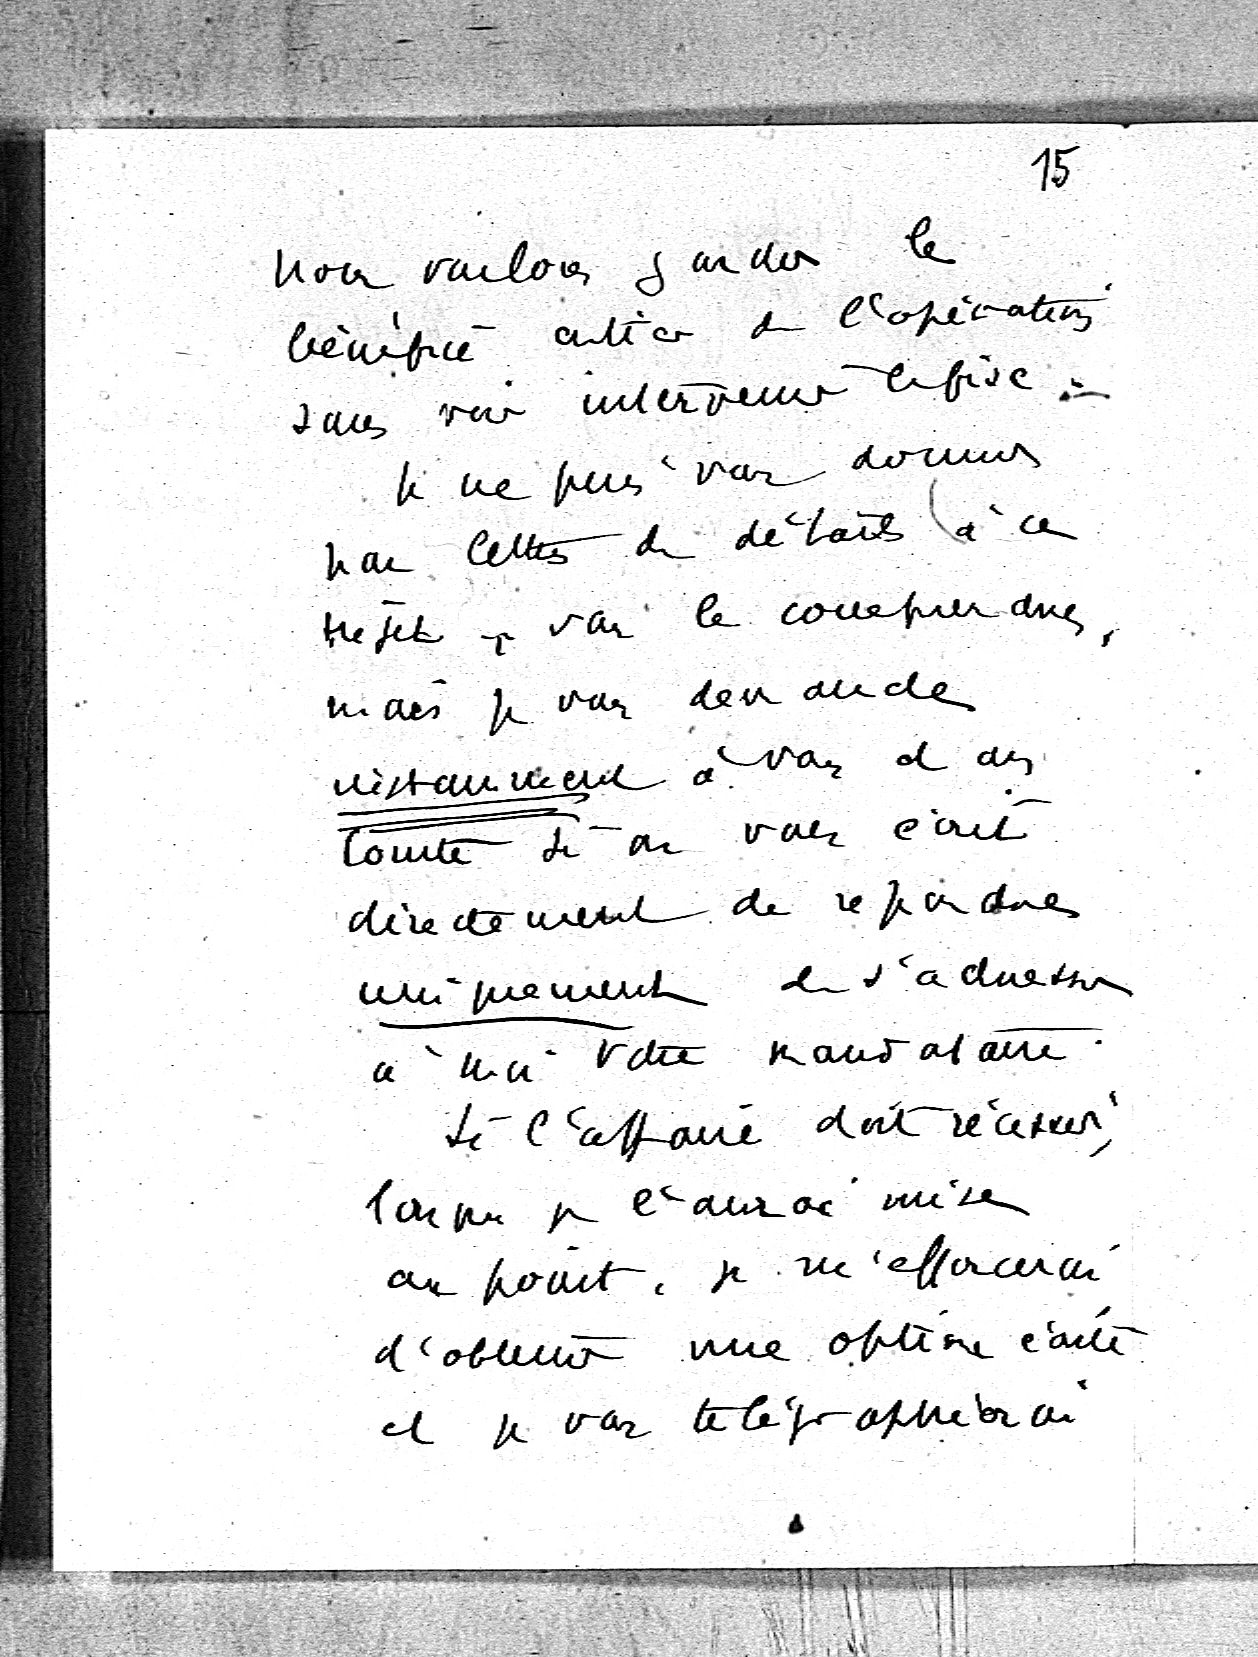 15
nous voulons garder le
bénéfice entier de l'opération
sans voir intervenir le fisc.
Je ne puis vous donner
par lettres de détails à ce
sujet, vous le comprendrez,
mais je vous demande
instamment à vous et au
Comité si on vous écrit
directement de répondre
uniquement de s'adresser
à moi votre mandataire.
Si l'affaire doit réussir,
lorsque je l'aurai mise
au point, je m'efforcerai
d'obtenir une option écrite
et je vous télégraphierai